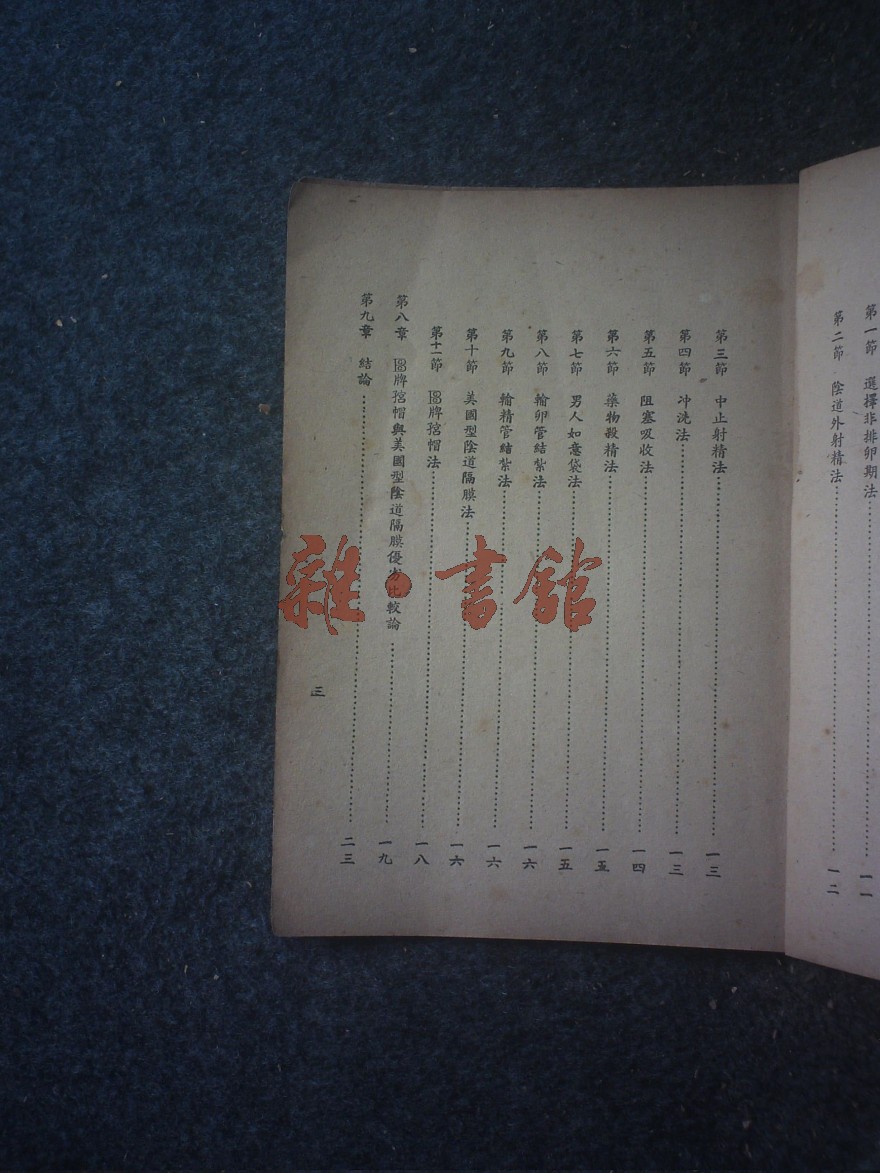 第一節 選擇非排卵期法 一一
第二節 陰道外射精法 一二
第三節 中止射精法 一三
第四節 冲洗法 一三
第五節 阻塞吸收法 一四
第六節 藥物殺精法 一五
第七節 男人如意袋法 一五
第八節 輸卵管結紮法 一六
第九節 輸精管結紮法 一六
第十節 美國型陰道隔膜法 一六
第十一節 牌宮帽法 一八
第八章 牌宮帽與美國型陰道隔膜優劣比較論 一九
第九章 結論 二三
三
雜·書館